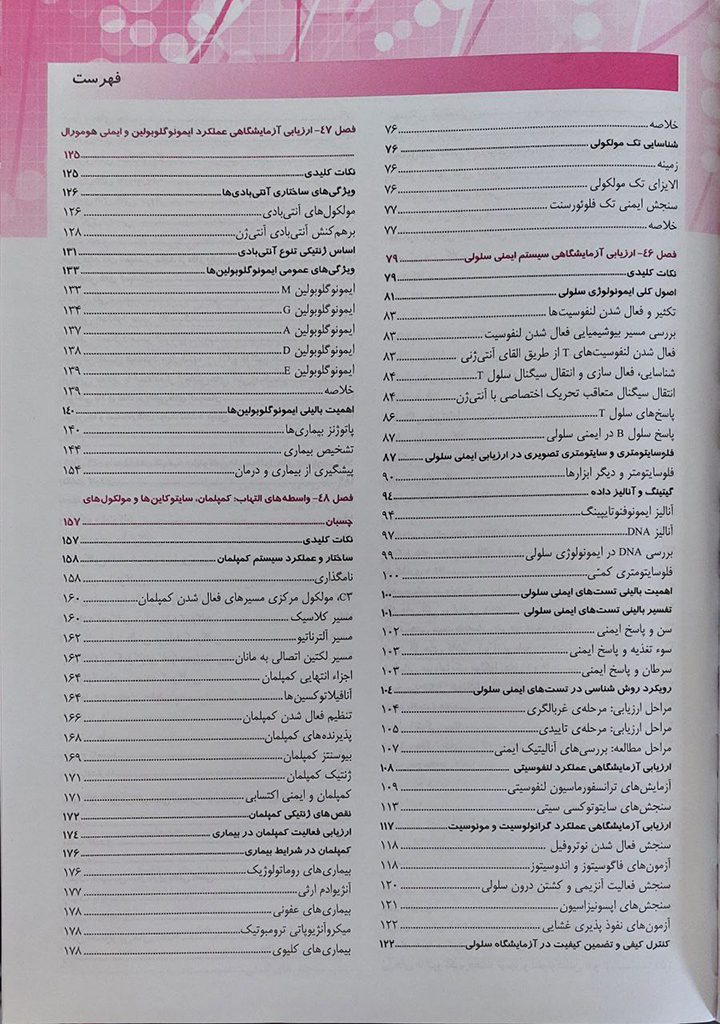 فهرست
خلاصه ۷۶
شناسایی تک مولکولی ۷۶
زمینه ۷۶
الایزای تک مولکولی ۷۶
سنجش ایمنی تک فلوئورسنت ۷۷
خلاصه ۷۷
فصل ۴۶- ارزیابی آزمایشگاهی سیستم ایمنی سلولی ۷۹
نکات کلیدی ۷۹
اصول کلی ایمونولوژی سلولی ۸۱
تکثیر و فعال شدن لنفوسیت‌ها ۸۳
بررسی مسیر بیوشیمیایی فعال شدن لنفوسیت ۸۳
فعال شدن لنفوسیت‌های T از طریق القای آنتی‌ژنی ۸۳
شناسایی، فعال سازی و انتقال سیگنال سلول T ۸۴
انتقال سیگنال متعاقب تحریک اختصاصی با آنتی‌ژن ۸۴
پاسخ‌های سلول T ۸۶
پاسخ سلول B در ایمنی سلولی ۸۷
فلوسایتومتری و سایتومتری تصویری در ارزیابی ایمنی سلولی ۸۷
فلوسایتومتر و دیگر ابزارها ۹۰
گیتینگ و آنالیز داده ۹۴
آنالیز ایمونوفنوتایپینگ ۹۴
آنالیز DNA ۹۷
بررسی DNA در ایمونولوژی سلولی ۹۹
فلوسایتومتری کمّی ۱۰۰
اهمیت بالینی تست‌های ایمنی سلولی ۱۰۰
تفسیر بالینی تست‌های ایمنی سلولی ۱۰۱
سن و پاسخ ایمنی ۱۰۲
سوء تغذیه و پاسخ ایمنی ۱۰۳
سرطان و پاسخ ایمنی ۱۰۳
رویکرد روش شناسی در تست‌های ایمنی سلولی ۱۰۴
مراحل ارزیابی: مرحله‌ی غربالگری ۱۰۴
مراحل ارزیابی: مرحله‌ی تاییدی ۱۰۵
مراحل مطالعه: بررسی‌های آنالیتیک ایمنی ۱۰۷
ارزیابی آزمایشگاهی عملکرد لنفوسیتی ۱۰۸
آزمایش‌های ترانسفورماسیون لنفوسیتی ۱۰۹
سنجش‌های سایتوتوکسی سیتی ۱۱۳
ارزیابی آزمایشگاهی عملکرد گرانولوسیت و مونوسیت ۱۱۷
سنجش فعال شدن نوتروفیل ۱۱۸
آزمون‌های فاگوسیتوز و اندوسیتوز ۱۱۸
سنجش فعالیت آنزیمی و کشتن درون سلولی ۱۲۰
سنجش‌های اپسونیزاسیون ۱۲۱
آزمون‌های نفوذ پذیری غشایی ۱۲۲
کنترل کیفی و تضمین کیفیت در آزمایشگاه سلولی ۱۲۲
فصل ۴۷- ارزیابی آزمایشگاهی عملکرد ایمونوگلوبولین و ایمنی هومورال
۱۲۵
نکات کلیدی ۱۲۵
ویژگی‌های ساختاری آنتی‌بادی‌ها ۱۲۶
مولکول‌های آنتی‌بادی ۱۲۶
برهم‌کنش آنتی‌بادی آنتی‌ژن ۱۲۸
اساس ژنتیکی تنوع آنتی‌بادی ۱۳۱
ویژگی‌های عمومی ایمونوگلوبولین‌ها ۱۳۳
ایمونوگلوبولین M ۱۳۳
ایمونوگلوبولین G ۱۳۴
ایمونوگلوبولین A ۱۳۷
ایمونوگلوبولین D ۱۳۸
ایمونوگلوبولین E ۱۳۹
خلاصه ۱۳۹
اهمیت بالینی ایمونوگلوبولین‌ها ۱۴۰
پاتوژنز بیماری‌ها ۱۴۰
تشخیص بیماری ۱۴۴
پیشگیری از بیماری و درمان ۱۵۴
فصل ۴۸- واسطه‌های التهاب: کمپلمان، سایتوکاین‌ها و مولکول‌های
چسبان ۱۵۷
نکات کلیدی ۱۵۷
ساختار و عملکرد سیستم کمپلمان ۱۵۸
نامگذاری ۱۵۸
C۳، مولکول مرکزی مسیرهای فعال شدن کمپلمان ۱۶۰
مسیر کلاسیک ۱۶۰
مسیر آلترناتیو ۱۶۲
مسیر لکتین اتصالی به مانان ۱۶۳
اجزاء انتهایی کمپلمان ۱۶۴
آنافیلاتوکسین‌ها ۱۶۴
تنظیم فعال شدن کمپلمان ۱۶۶
پذیرنده‌های کمپلمان ۱۶۸
بیوسنتز کمپلمان ۱۶۹
ژنتیک کمپلمان ۱۷۱
کمپلمان و ایمنی اکتسابی ۱۷۱
نقص‌های ژنتیکی کمپلمان ۱۷۲
ارزیابی فعالیت کمپلمان در بیماری ۱۷۴
کمپلمان در شرایط بیماری ۱۷۶
بیماری‌های روماتولوژیک ۱۷۶
آنژیوادم ارثی ۱۷۷
بیماری‌های عفونی ۱۷۸
میکروآنژیوپاتی ترومبوتیک ۱۷۸
بیماری‌های کلیوی ۱۷۸